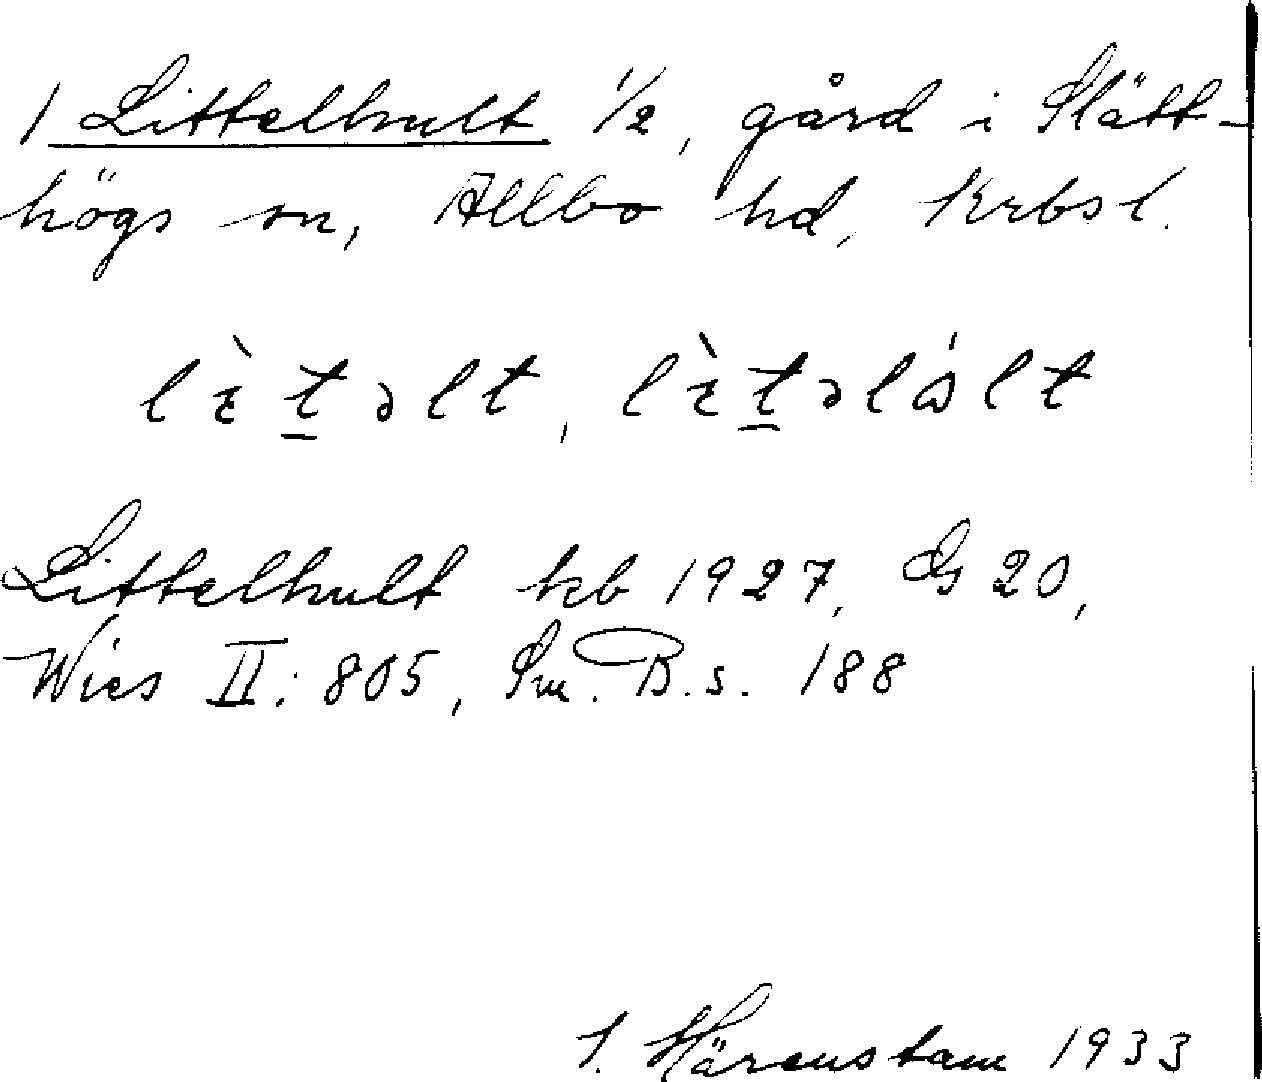 1 Littelhult 1/2, gård i Slätt-
högs sn, Allbo hd, Krbsl.
lìt̲əlt, lìt̲əlált
Littelhult kb 1927, GS 20,
Wies II: 805, Sm. B. s. 188
S. Härenstam 1933